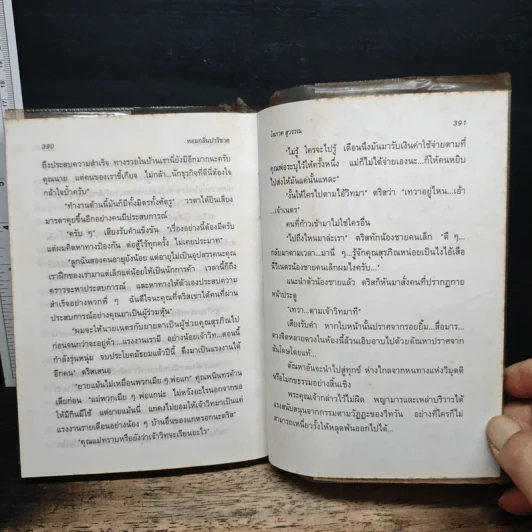 390
หอมกลิ่นปาริชาต
ถึงประสบความสำเร็จ ทางรวยในบ้านเรานี่ยังมีอีกมากนะครับ
คุณนาย แต่คนของเราขี้เกียจ ไม่กล้า นักธุรกิจที่ดีนี่ต้องใจ
กล้าใจป้ำครับ"
"ทำงานด้านนี้มันก็มีทั้งมิตรทั้งศัตรู" วรดาได้ปินเสียง
มารดาคุยขึ้นอีกอย่างคนมีประสบการณ์
"ครับ ๆ" เสียงรับคำแข็งขัน "เรื่องอย่างนี้ต้องมีครับ
แต่ผมคิดหาทางป้องกัน ต่อสู้ไว้ทุกครั้ง ไม่เคยประมาท"
"ลูกฉันสองคนอายุยังน้อย แต่อายุไม่เป็นอุปสรรคนะคุณ
เราฝึกของเรามาแต่เล็กแต่น้อยให้เป็นนักการค้า เวลานี้ก็ถึง
คราวจะหาประสบการณ์ และหาทางให้ตัวเองประสบความ
สำเร็จอย่างพวกพี่ ๆ ฉันดีใจนะคุณที่ตริสเราได้คนที่ผ่าน
ประสบการณ์อย่างคุณมาเป็นผู้ร่วมหุ้น"
"ผมจะให้นายเนตรกับยายตาเป็นผู้ช่วยคุณสุรภิณไป
ก่อนจนกว่าจะอยู่ตัว....แรงงานเรามี อย่างน้อยเจ้าวิท...ตอนนี้
กำลังรุ่นหนุ่ม จบประโยคมัธยมแล้วปีนี้ ดึงมาเป็นแรงงานได้
อีกคน" ตริสเสนอ
"ยายแม้นไม่เหมือนพวกเมีย ๆ พ่อแก" คุณพนินทรค้าน
เสียก่อน "แม่พวกเมีย ๆ พ่อแกน่ะ ไม่หวังอะไรนอกจากขอ
ให้มีกินมีใช้ แต่ยายแม้นนี่ แกคงไม่ยอมให้เจ้าวิทมาเป็นแค่
แรงงานรายเดือนอย่างน้อง ๆ บ้านอื่นของแกหรอกนะตริส"
"คุณแม่ทราบหรือยังว่าเจ้าวิทจะเรียนอะไร"
โสภาค สุวรรณ
391
"ไม่รู้ ใครจะไปรู้ เดือนนึงมันมารับเงินค่าใช้จ่ายตามที่
คุณพ่อระบุไว้ให้ครั้งหนึ่ง แม่ก็ไม่ได้จ่ายเองนะ...ก็ให้คนหยิบ
ไปส่งให้มันแค่นั้นแหละ"
"งั้นให้ใครไปตามไอ้วิทมา" ตริสว่า "เทวาอยู่ไหน...เอ้า
...เจ้าเนตร"
คนที่ก้าวเข้ามาไม่ใช่ใครอื่น
"ไปถึงไหนมาล่ะเรา" ตริสทักน้องชายคนเล็ก "ดี ๆ...
กลับมาตามเวลา...มานี่ ๆ...รู้จักคุณสุรภิณหน่อยเป็นไงไอ้เสือ
นี่ไงเนตรน้องชายคนเล็กผมไงครับ..."
แนะนำตัวน้องชายแล้ว ตริสก็หันมาสั่งคนที่ปรากฏกาย
หน้าประตู
"เทวา...ตามเจ้าวิทมาที"
เสียงรับคำ หากใบหน้านั้นปราศจากรอยยิ้ม...สื่อมาร...
ดวงจิตหลายดวงในห้องนี้ล้วนเอิบอาบไปด้วยตัณหาปราศจาก
สันโดษโดยแท้...
ตัณหาอันจะนำไปสู่ทุกข์ ห่างไกลจากหนทางแห่งวิมุตติ
หรือโมกขธรรมอย่างสิ้นเชิง
พระคุณเจ้ากล่าวไว้ไม่ผิด พญามารและเหล่าบริวารได้
แรงสนับสนุนจากกรรมตามวัฏฏะของวิทวัน อย่างที่ใครก็ไม่
สามารถเหนี่ยวรั้งให้หลุดพ้นออกไปได้...